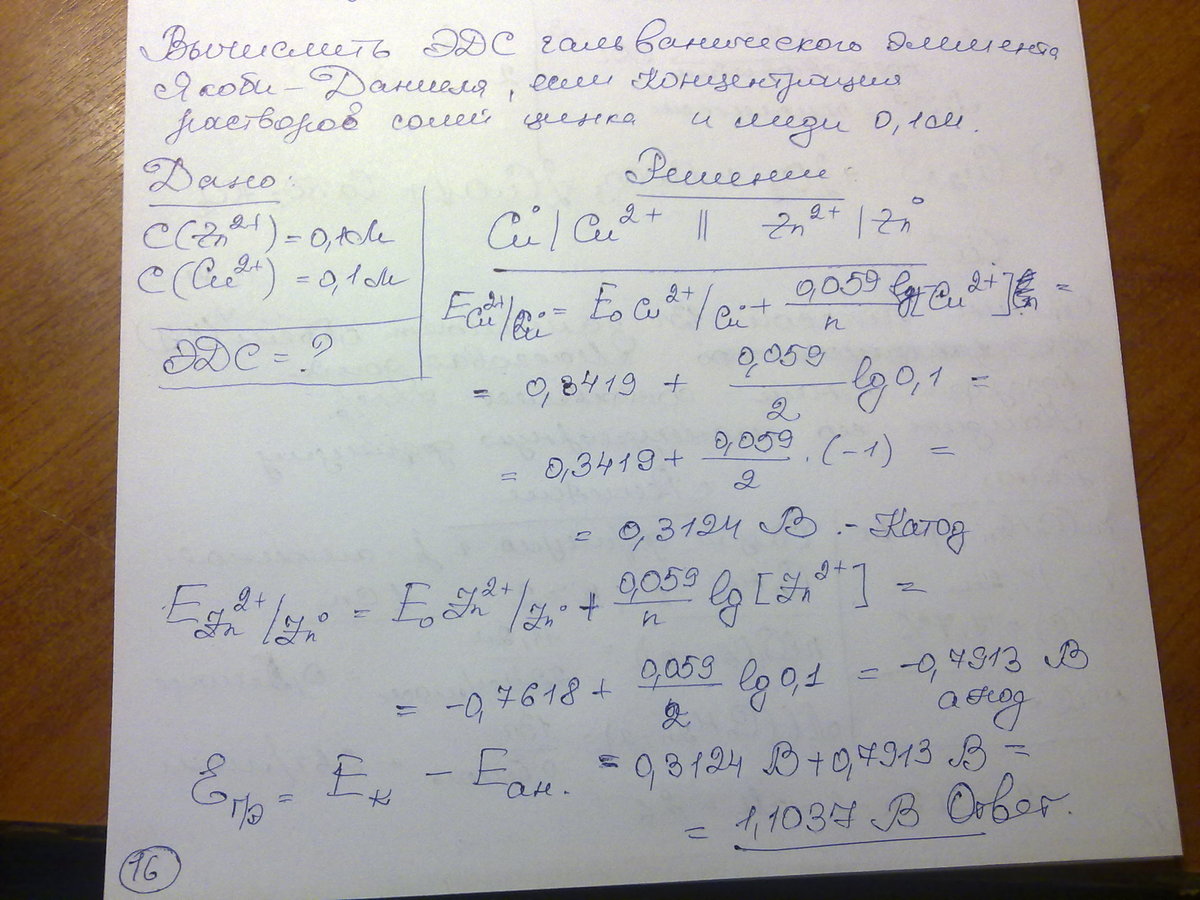 Вычислить ЭДС гальванического элемента
Якоби – Даниеля, если концентрация
растворов солей цинка и меди 0,1м.
Дано:
C(Zn²⁺) = 0,1м
C(Cu²⁺) = 0,1м
ЭДС = ?
Решение:
Cu⁰ | Cu²⁺ || Zn²⁺ | Zn⁰
E Cu²⁺/Cu⁰ = E₀ Cu²⁺/Cu⁰ + 0,059/n lg[Cu²⁺] =
= 0,3419 + 0,059/2 lg 0,1 =
= 0,3419 + 0,059/2 · (-1) =
= 0,3124 В. - Катод
E Zn²⁺/Zn⁰ = E₀ Zn²⁺/Zn⁰ + 0,059/n lg [Zn²⁺] =
= -0,7618 + 0,059/2 lg 0,1 = -0,7913 В
анод
Eгэ = Eк – Eан. = 0,3124 В + 0,7913 В =
= 1,1037 В Ответ.
16